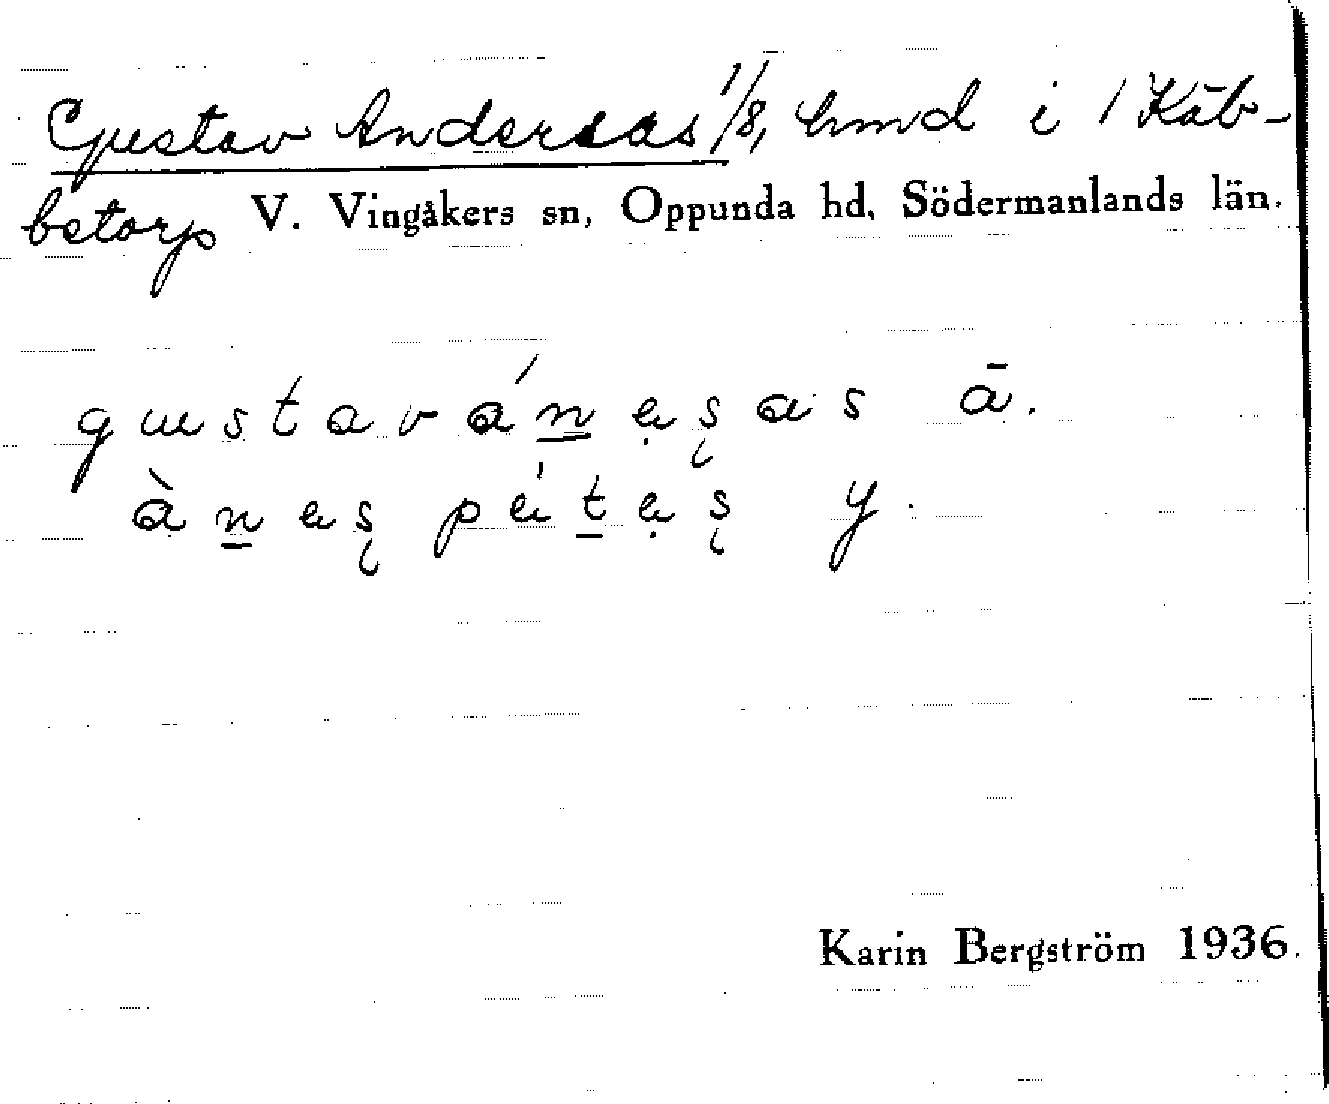 Gustav Andersas 1/8, hmd i 1 Käb-
betorp V. Vingåkers sn, Oppunda hd, Södermanlands län.
gustaván̲ęşas ā.
àn̲eş pét̲ẹş y.
Karin Bergström 1936.